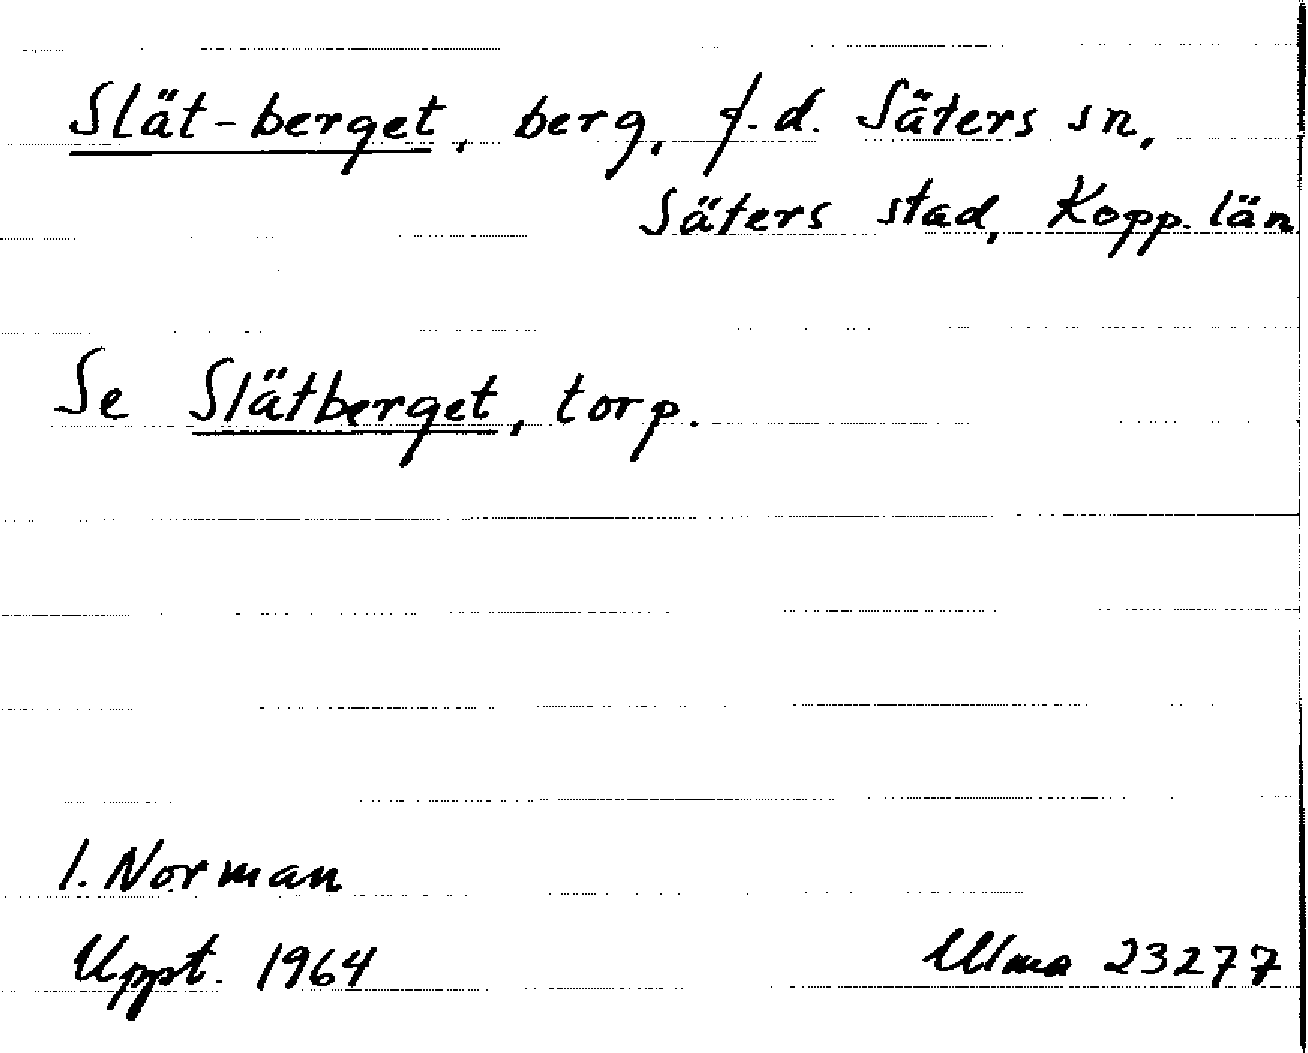 Slät-berget, berg, f.d. Säters sn,
Säters stad, Kopp. län
Se Slätberget, torp.
I. Norman
Uppt. 1964 Ulma 23277